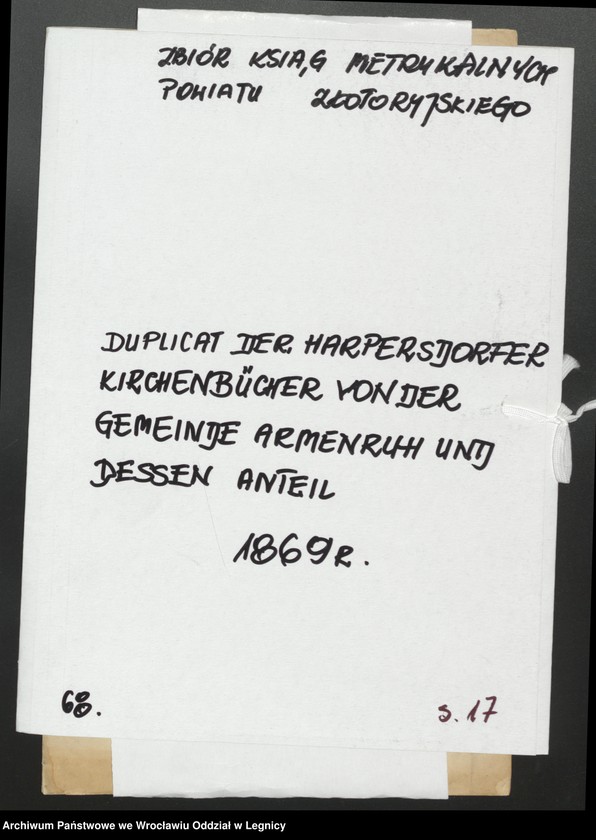 ZBIÓR KSIĄG METRYKALNYCH
POWIATU ZŁOTORYJSKIEGO
DUPLICAT DER HARPERSDORFER
KIRCHENBÜCHER VON DER
GEMEINDE ARMENRUH UND
DESSEN ANTEIL
1869 R.
68.
S. 17
Archiwum Państwowe we Wrocławiu Oddział w Legnicy